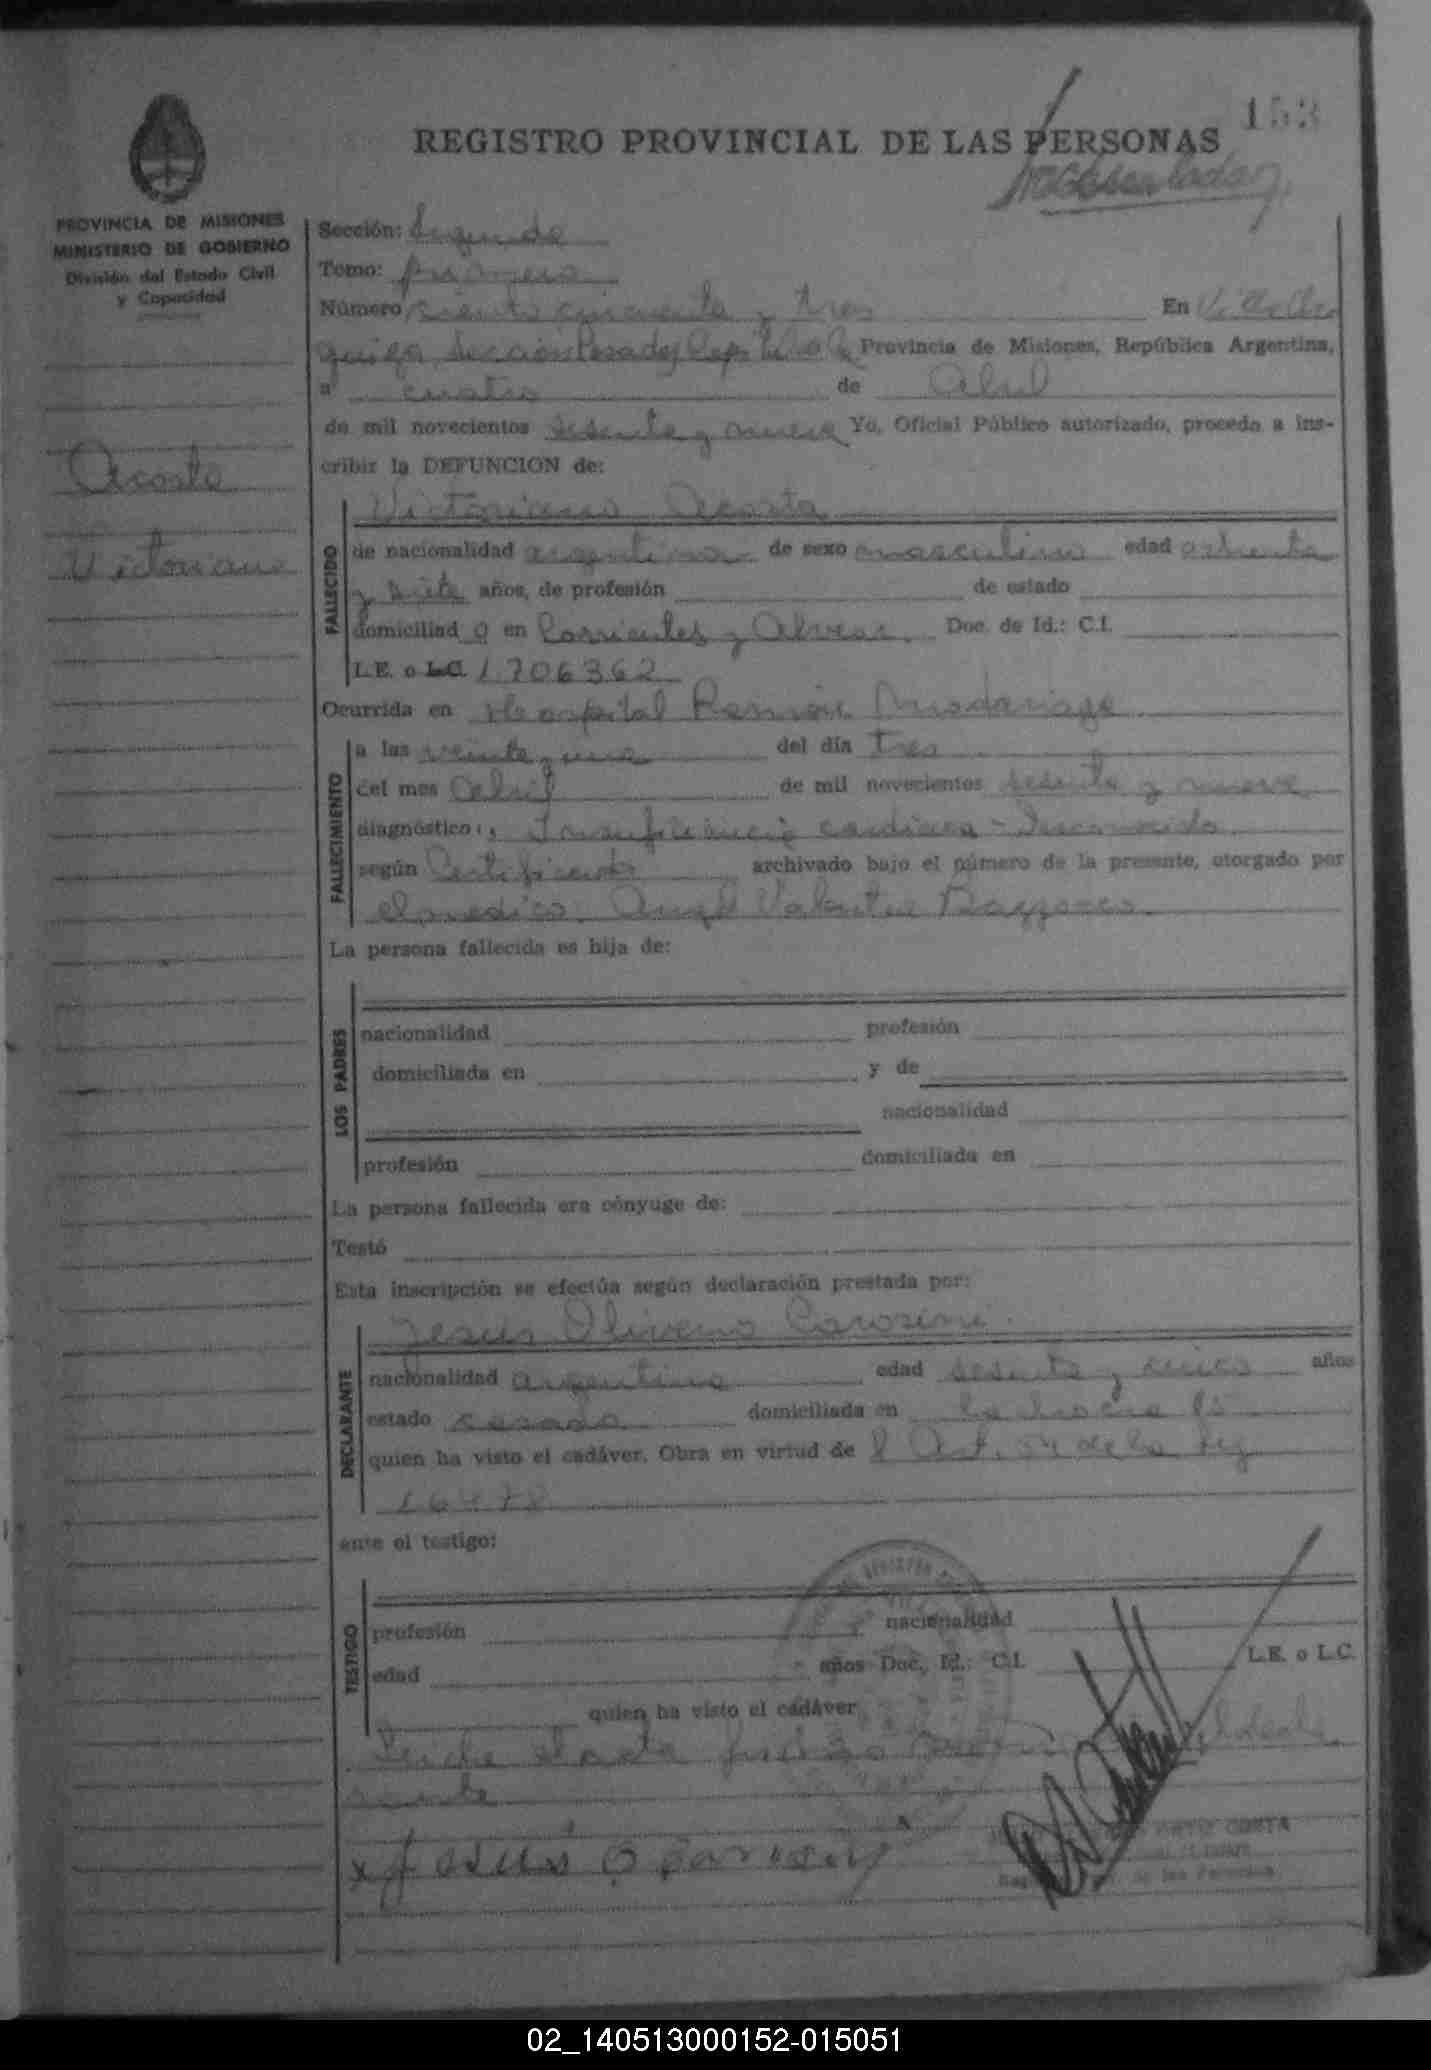 153
REGISTRO PROVINCIAL DE LAS PERSONAS
PROVINCIA DE MISIONES
MINISTERIO DE GOBIERNO
División del Estado Civil
y Capacidad
Acosta
Victoriano
Sección: Segunda
Tomo: primero
Número ciento cincuenta y tres En Villa
Sección Posadas Provincia de Misiones, República Argentina,
a cuatro de Abril
de mil novecientos sesenta y nueve Yo, Oficial Público autorizado, procedo a ins-
cribir la DEFUNCION de:
Victoriano Acosta
FALLECIDO
de nacionalidad argentina de sexo masculino edad ochenta
y siete años, de profesión de estado
domiciliad o en Corrientes y Alvear. Doc. de Id.: C.I.
L.E. o L.C. 1.706362
Ocurrida en Hospital Ramón Madariaga
FALLECIMIENTO
a las veinte y una del día tres
del mes Abril de mil novecientos sesenta y nueve
diagnóstico: Insuficiencia cardiaca -
según Certificado archivado bajo el número de la presente, otorgado por
el médico: Angel Valentin
La persona fallecida es hija de:
LOS PADRES
nacionalidad profesión
domiciliada en y de
nacionalidad
profesión domiciliada en
La persona fallecida era cónyuge de:
Testó
Esta inscripción se efectúa según declaración prestada por:
Jesús Oliverio
DECLARANTE
nacionalidad argentina edad sesenta y cinco años
estado casado domiciliada en
quien ha visto el cadáver. Obra en virtud de l Art. 54 de la ley
16478
ante el testigo:
TESTIGO
profesión nacionalidad
edad años Doc. Id.: C.I. L.E. o L.C.
quien ha visto el cadáver
Leida el acta
02_140513000152-015051